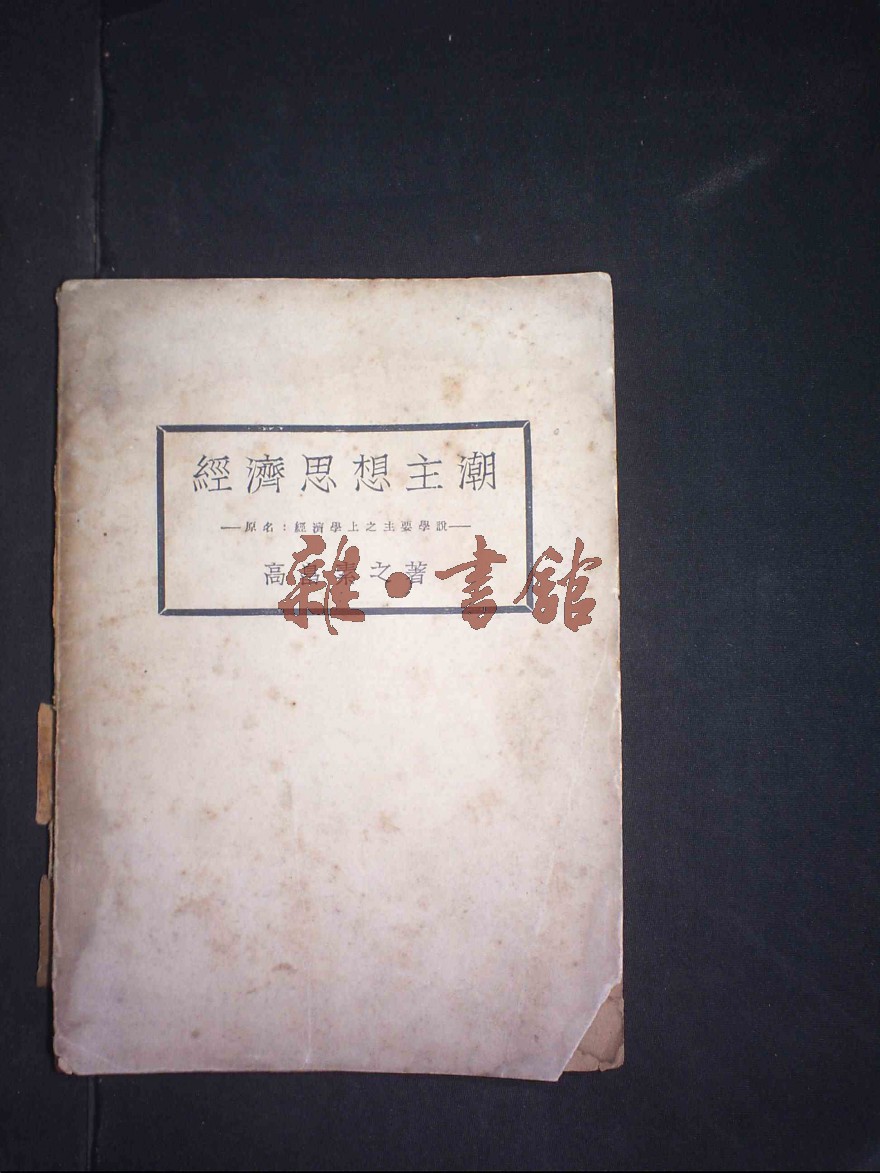 經濟思想主潮
—原名：經濟學上之主要學說—
高畠素之著
雜·書館